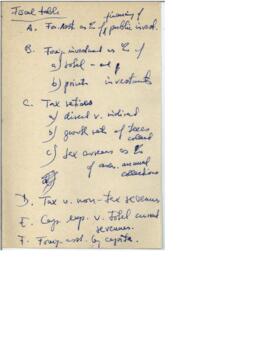 Fiscal table
financing of
A. For. asst. as % of public invest.
B. Foreign investment as % of
a) total
b) private investments
C. Tax ratios
a) direct v. indirect
b) growth rate of taxes
c) tax revenues as %
of annual
collections
D. Tax v. non-tax revenues
E. Cap. exp. v. total current
revenues.
F. Foreign asst. by capita